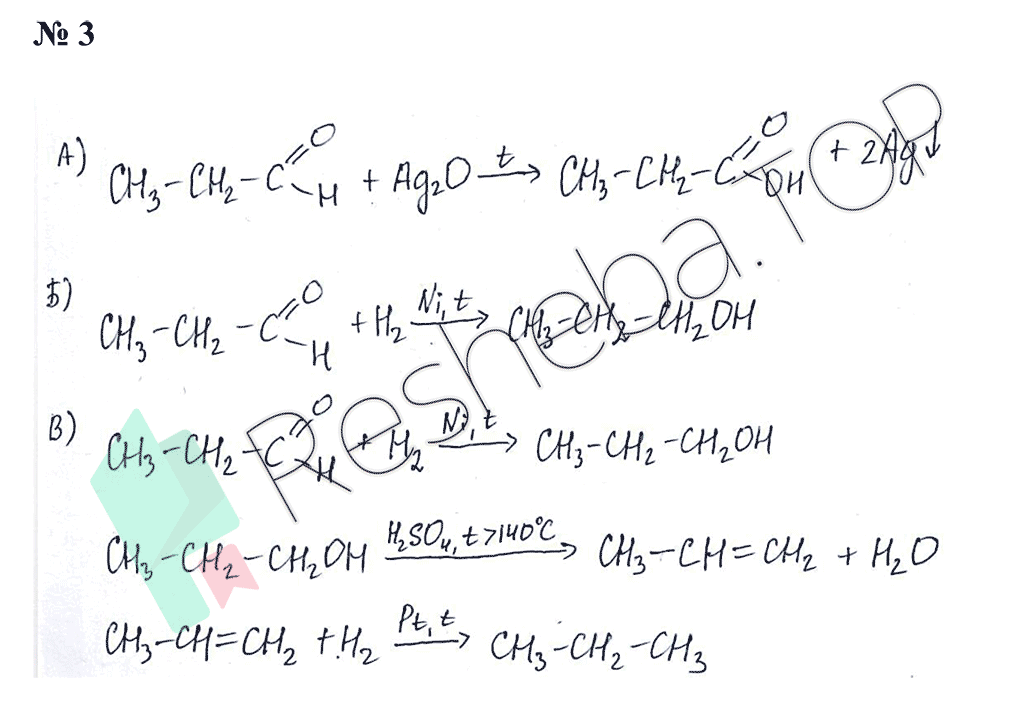 № 3
А) CH₃–CH₂–C(=O)–H + Ag₂O –t→ CH₃–CH₂–C(=O)–OH + 2Ag↓
Б) CH₃–CH₂–C(=O)–H + H₂ –Ni, t→ CH₃–CH₂–CH₂OH
В) CH₃–CH₂–C(=O)–H + H₂ –Ni, t→ CH₃–CH₂–CH₂OH
CH₃–CH₂–CH₂OH –H₂SO₄, t>140°C→ CH₃–CH=CH₂ + H₂O
CH₃–CH=CH₂ + H₂ –Pt, t→ CH₃–CH₂–CH₃
Resheba.TOP